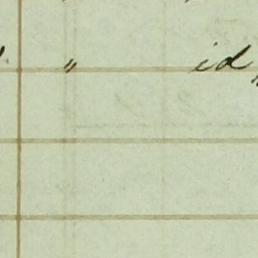 " id